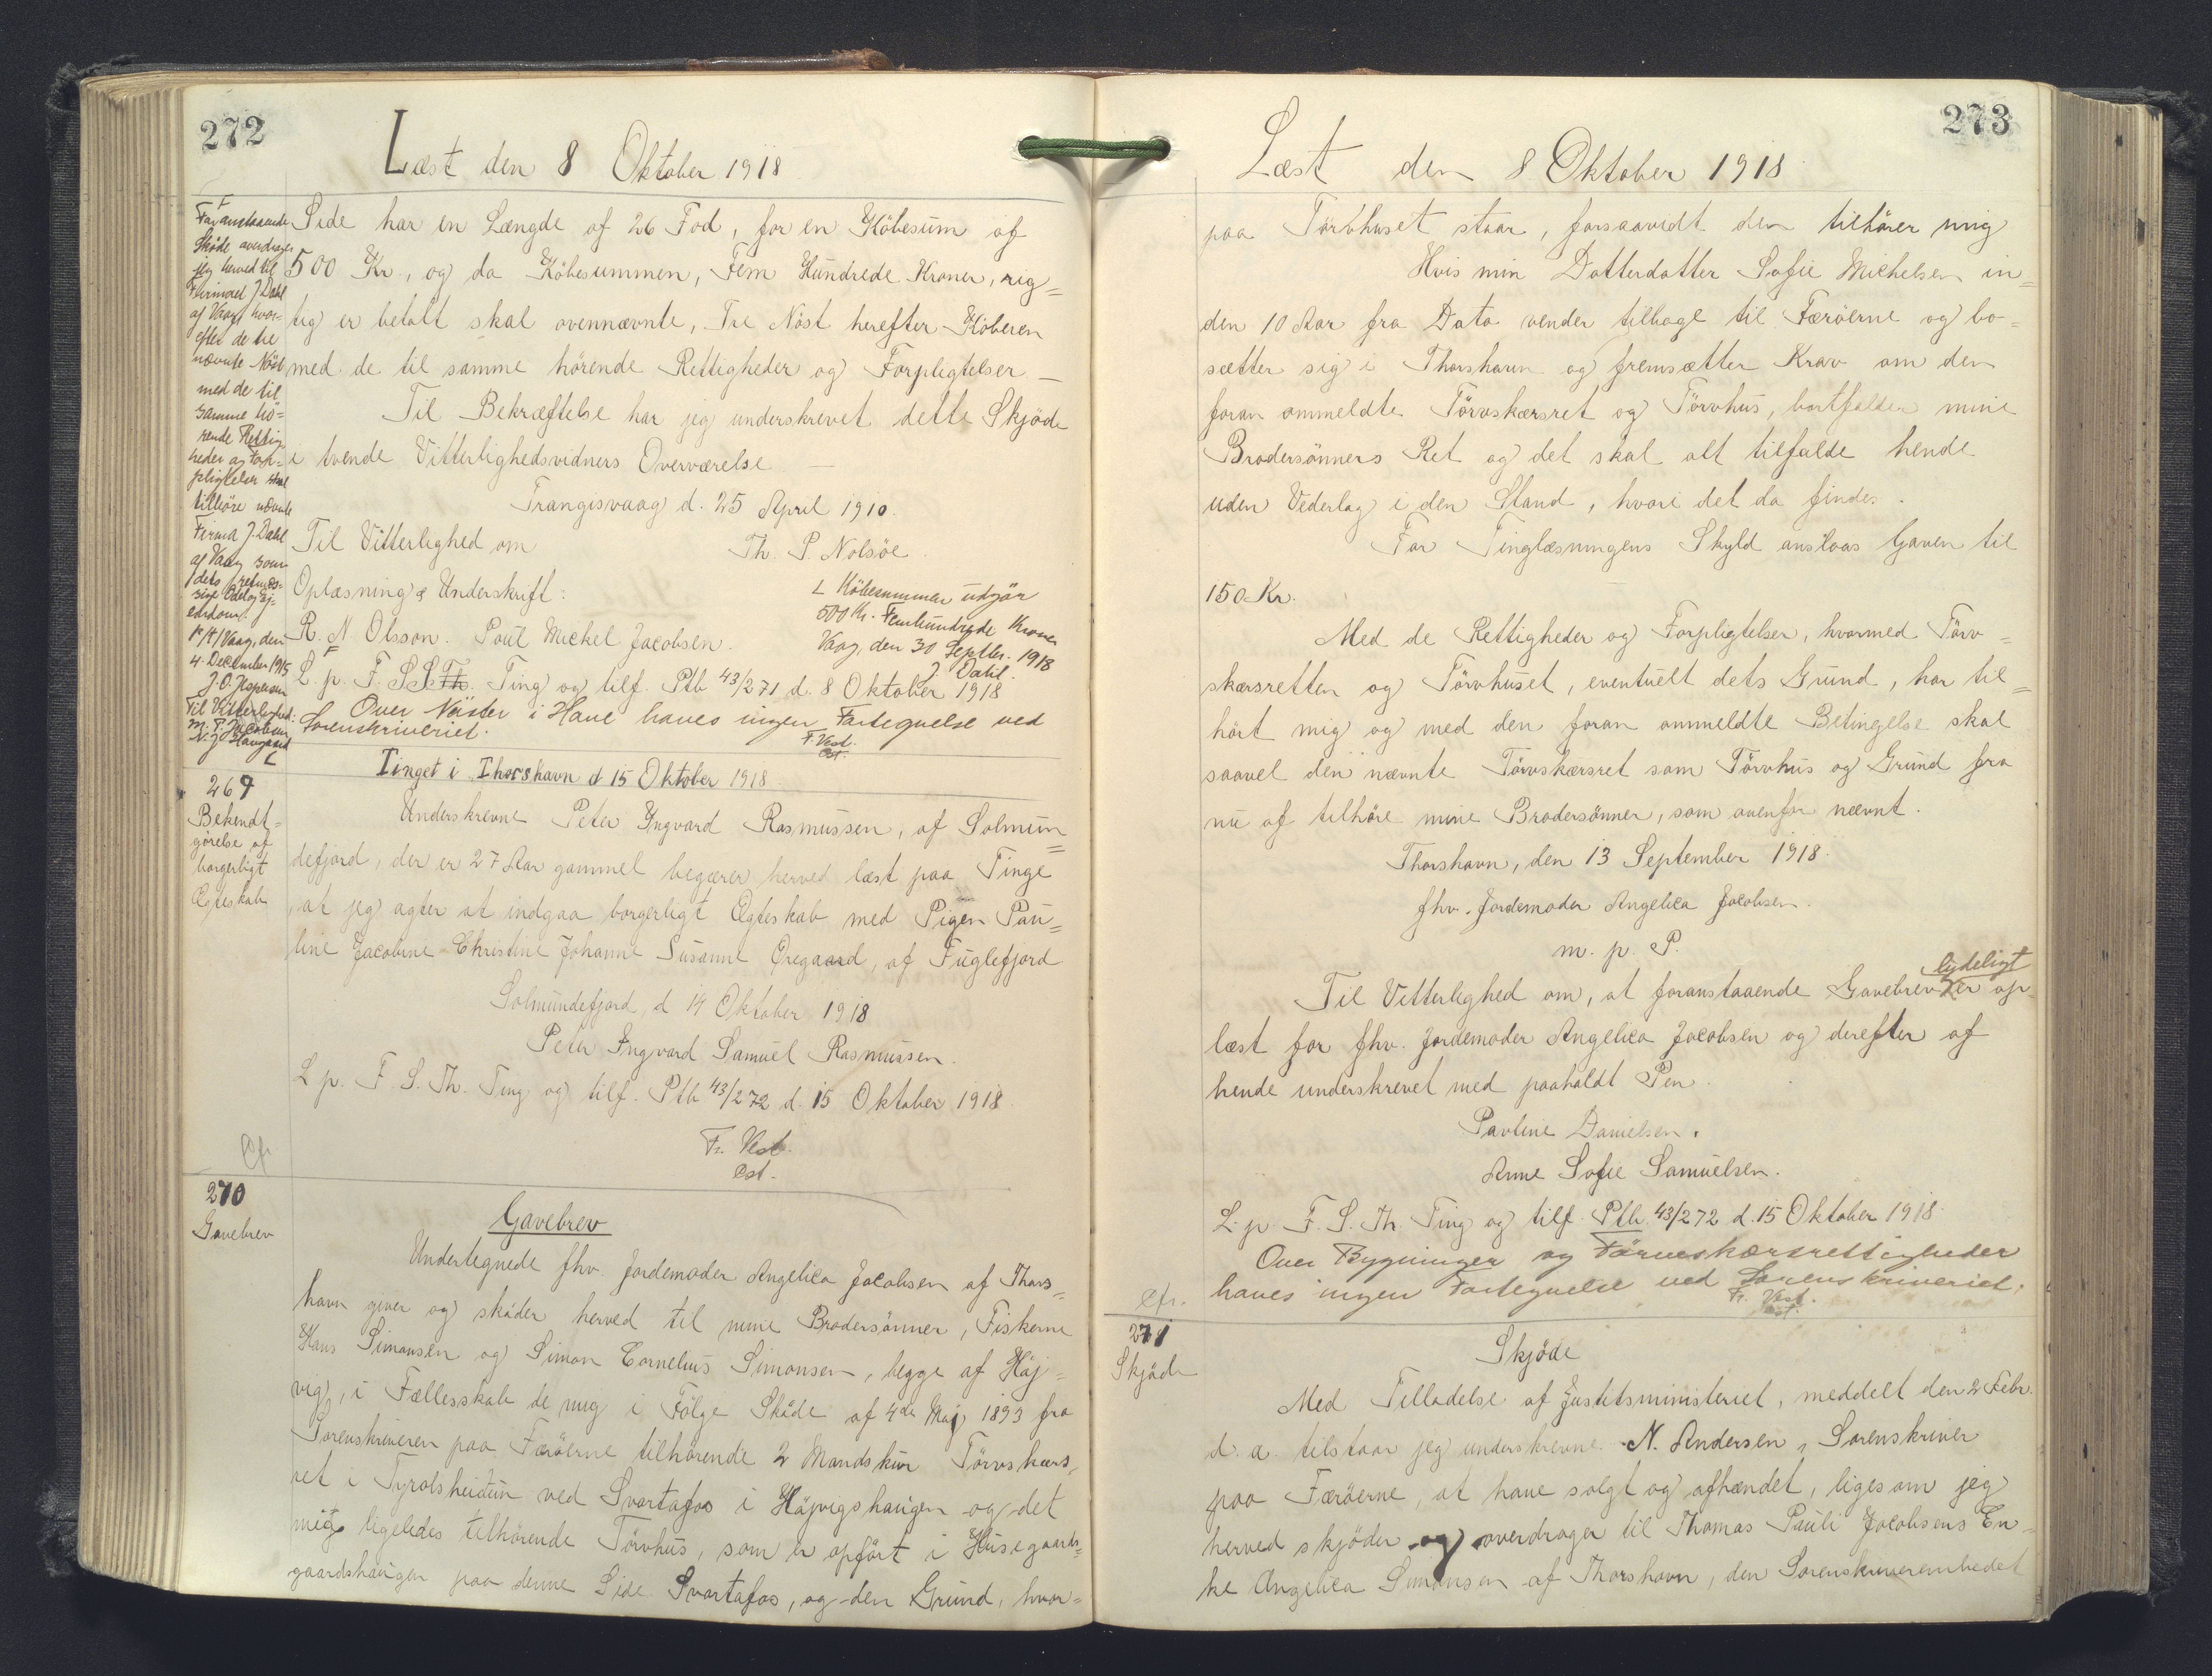 272
Læst den 8 Oktober 1918
Foranstaaende
Skøde overdrager
jeg herved til
Firmaet J. Dahl
af Vaag hvor-
efter de tre
nævnte Nöst
med de til
samme hö=
rende Rettig-
heder og For-
pligtelser skal
tilhöre nævnte
Firma J. Dahl
af Vaag som
dets retmæs-
sige Odel og Ej-
endom.
p/t Vaag, den
4. December 1915
J. O. Jespersen
Til Vitterlighed:
M. P. Jacobsen
N. J. Haugaard
Side har en Længde af 26 Fod, for en Köbesum af
500 Kr., og da Köbesummen, Fem Hundrede Kroner, rig=
tig er betalt skal ovennævnte, Tre Nöst herefter Köberen
med de til samme hörende Rettigheder og Forpligtelser —
Til Bekræftelse har jeg underskrevet dette Skjöde
i tvende Vitterlighedsvidners Overværelse —
Trangisvaag d. 25 April 1910.
Til Vitterlighed om
Th. P. Nolsöe.
Oplæsning & Underskrift:
R. N. Olsson. Poul Mickel Jacobsen.
L Köbesummen udgör
500 Kr. Femhundrede Kroner
Vaag, den 30 Septbr. 1918
J. Dahl.
L. p. F. S. S. Th. Ting og tilf. Ptb 43/271 d. 8 Oktober 1918
Over Nöster i Hove haves ingen Fortegnelse ved
Sorenskriveriet.
F. Vest.
Cst.
Tinget i Thorshavn d 15 Oktober 1918
269
Bekendt=
görelse af
borgerligt
Ægteskab
Underskrevne Peter Yngvard Rasmussen, af Solmun=
defjord, der er 27 Aar gammel begærer herved læst paa Tinge
, at jeg agter at indgaa borgerligt Ægteskab med Pigen Pau=
line Jacobine Christine Johanne Susanne Öregaard, af Fuglefjord
Solmundefjord, d 14 Oktober 1918
Peter Yngvard Samuel Rasmussen.
L p. F. S. Th. Ting og tilf. Ptb 43/272 d. 15 Oktober 1918.
Fr. Vest.
Cst.
Cfr.
270
Gavebrev
Gavebrev
Undertegnede fhv. Jordemoder Angelica Jacobsen af Thors=
havn giver og sköder herved til mine Brodersönner, Fiskerne
Hans Simonsen og Simon Cornelius Simonsen, begge af Höj=
vig, i Fællesskab de mig i Fölge Sköde af 4de Maj 1893 fra
Sorenskriveren paa Færöerne tilhörende 2 Mandskur Törvskærs=
ret i Tyrolsheidun ved Svartafos i Höjvigshaugen og det
mig ligeledes tilhörende Törvhus, som er opfört i Husegaards=
gaardshaugen paa denne Side Svartafos, og den Grund, hvor=
273
Læst den 8 Oktober 1918
paa Törvhuset staar, forsaavidt den tilhörer mig
Hvis min Datterdatter Sofie Michelsen in=
den 10 Aar fra Dato vender tilbage til Færöerne og bo=
sætter sig i Thorshavn og fremsætter Krav om den
foran ommeldte Törvskærsret og Törvhus, bortfalder mine
Brodersönners Ret og det skal alt tilfalde hende
uden Vederlag i den Stand, hvori det da findes.
For Tinglæsningens Skyld anslaas Gaven til
150 Kr.
Med de Rettigheder og Forpligtelser, hvormed Törv=
skærsretten og Törvhuset, eventuelt dets Grund, har til=
hört mig og med den foran ommeldte Betingelse skal
saavel den nævnte Törvskærsret som Törvhus og Grund fra
nu af tilhöre mine Brodersönner, som ovenfor nævnt.
Thorshavn, den 13 September 1918.
fhv. Jordemoder Angelica Jacobsen.
m. p. P.
lydeligt
Til Vitterlighed om, at foranstaaende Gavebrev er op
læst for fhv. Jordemoder Angelica Jacobsen og derefter af
hende underskrevet med paaholdt Pen.
Pauline Danielsen.
Anne Sofie Samuelsen.
L. p. F. S. Th. Ting og tilf. Ptb. 43/272 d. 15 Oktober 1918.
Over Bygninger og Törveskærsrettigheder
haves ingen Fortegnelse ved Sorenskriveriet.
Fr. Vest.
Cst.
Cfr.
271
Skjöde
Skjöde
Med Tilladelse af Justitsministeriet, meddelt den 2 Febr.
d. a. tilstaar jeg underskrevne N. Andersen, Sorenskriver
paa Færöerne, at have solgt og afhændet, ligesom jeg
herved skjöder og overdrager til Thomas Pauli Jacobsens En=
ke Angelica Simonsen af Thorshavn, den Sorenskriverembedet